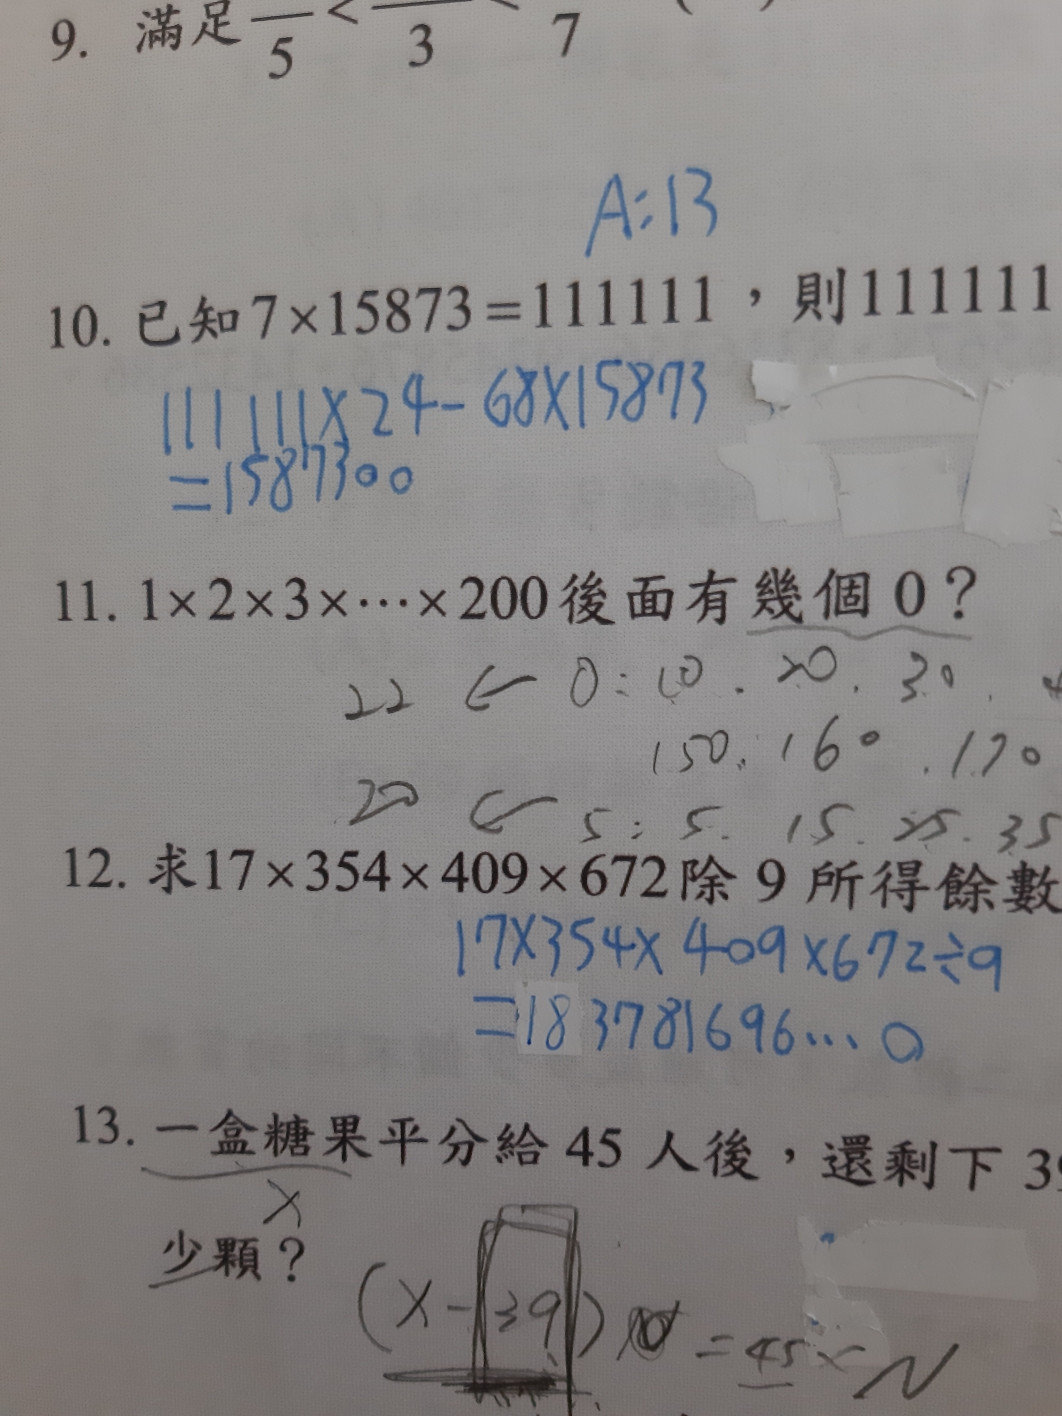 9. 滿足 5 < 3 < 7
A:13
10. 已知7×15873=111111，則111111
111111×24-68×15873
=1587300
11. 1×2×3×…×200後面有幾個0？
22 ← 0: 10. 20. 30.
150. 160. 170
20 ← 5: 5. 15. 25. 35
12. 求17×354×409×672除9所得餘數
17×354×409×672÷9
=183781696…0
13. 一盒糖果平分給45人後，還剩下39
x
少顆？
(x-39) =45×N